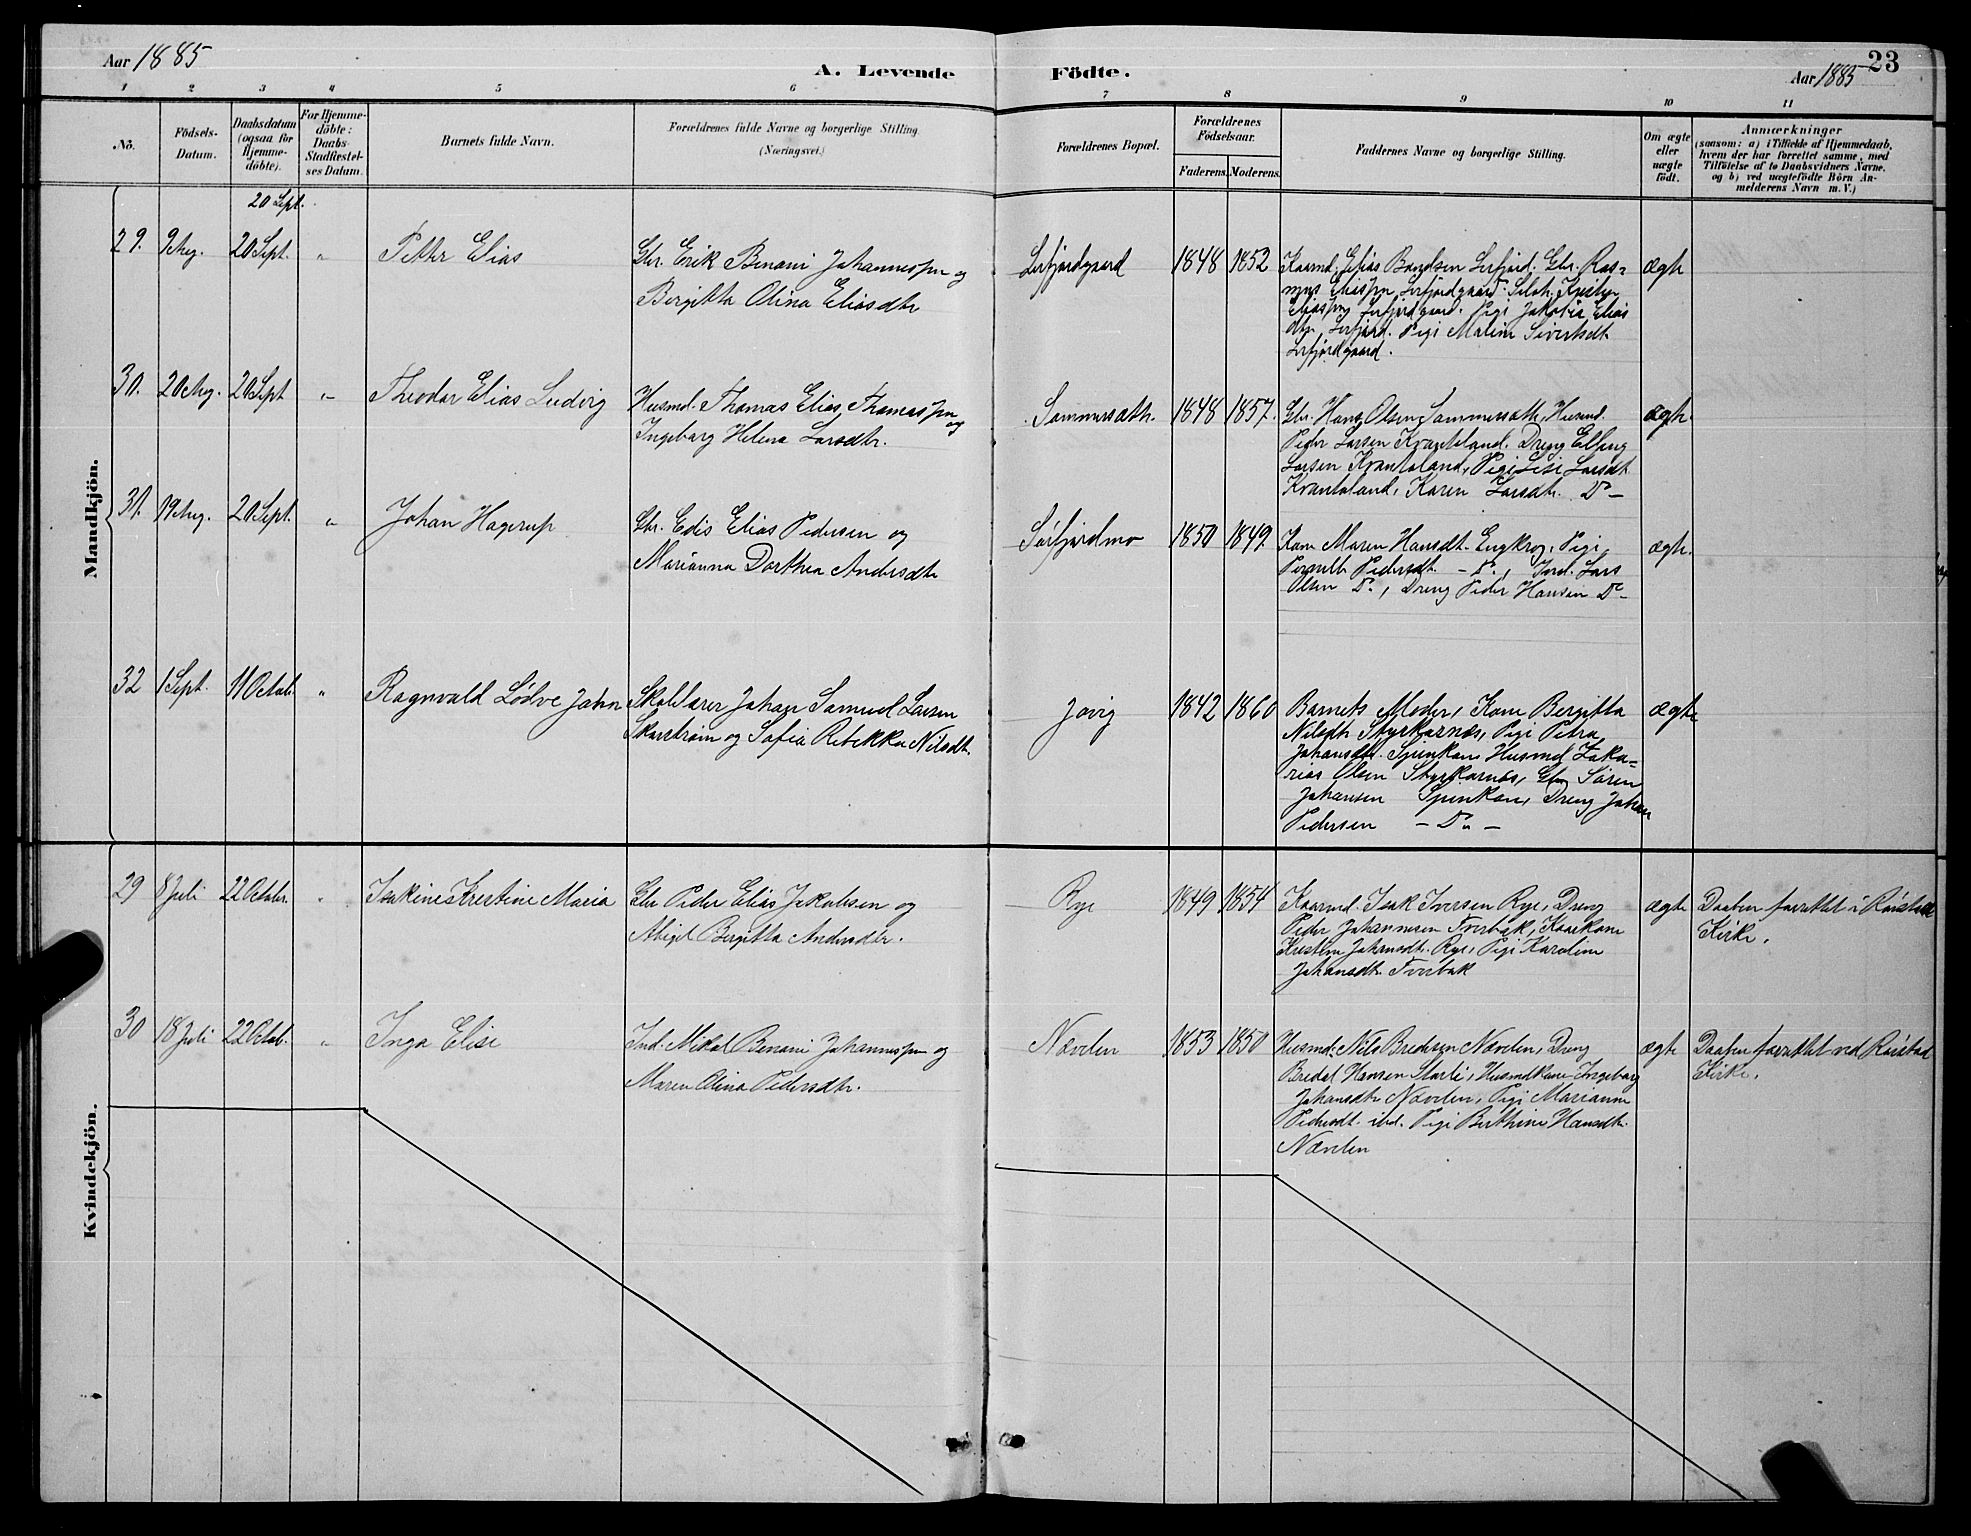 Aar 1885
A. Levende Födte.
23
Aar 1885
1 2 3 4 5 6 7 8 9 10 11
No.
Födsels-
Datum.
Daabsdatum
(ogsaa for
Hjemme-
døbte).
For Hjemme-
döbte:
Daabs-
Stadfæstel-
ses Datum.
Barnets fulde Navn.
Forældrenes fulde Navne og borgerlige Stilling.
(Næringsvei.)
Forældrenes Bopæl.
Forældrenes
Födselsaar.
Faderens.
Moderens.
Faddernes Navne og borgerlige Stilling.
Om ægte
eller
uægte
födt.
Anmærkninger
(saasom: a) i Tilfælde af Hjemmedaab,
hvem der har forrettet samme, med
Tilföielse af to Daabsvidners Navne,
og b) ved uægtefödte Börn An-
melderens Navn m. V.)
Mandkjön.
20 Sept.
29. 9 Aug. 20 Sept. " Petter Elias
Gbr. Erik Benoni Johannessen og
Bergitta Olina Eliasdtr
Leifjordgaard 1848 1852
Kaarmd. Elias Bendsen Leirfjord. Gbr. Ras-
mus Eliassen Leirfjordgaard.
Eliassen Leirfjordgaard. Pige Jakobia Elias
dtr. Leirfjord. Pige Maline Sivertsdt.
Leirfjordgaard.
ægte
30. 20 Aug. 20 Sept " Theodor Elias Ludvig
Husmd. Thomas Elias Thomassen
og
Ingeborg Helena Larsdtr.
Sommersæth. 1848 1857.
Gbr. Hans Olsen Sommersæth, Husmd.
Peder Larsen Kvanteland. Dreng
Larsen Kvantoland, Pige Lise Larsdt
Kvantoland, Karen Larsdtr. Do -
ægte.
31. 19 Aug. 20 Sept. " Johan Hagerup
Gbr. Edis Elias Pedersen og
Marianna Dorthea Andersdtr
Sörfjordmo 1850 1849.
Kone Maren Hansdt. Engkrog, Pige
Pernille Pedersdt. - Do., Lars
Olsen Do., Dreng Peder Hansen Do -
ægte.
32 1 Sept. 11 Octob. " Ragnvald Lödve John
Skolelærer Johan Samuel Larsen
Skarstrøm og Sofia Rebekka Nilsdt.
Jovig 1842 1860
Barnets Moder, Kone Bergitta
Nilsdt. Styrkarnæs, Pige Petra
Johansdtr. Spinkon, Husmd Zaka-
rias Olsen Styrkarnæs, Gbr. Sören
Johansen Spinkon, Dreng Johan
Pedersen - Do -
ægte
Kvindekjön.
29 8 Juli 22 October. " Isakine Krestine Maria
Gbr Peder Elias Jakobsen og
Abigel Bergitta Andersdtr.
Rye 1849 1854
Kaarmd. Isak Iversen Rye, Dreng
Peder Johannesen Tverbak, Kaarkone
Krestine Johansdt. Rye, Pige Karoline
Johansdtr Tverbak
ægte
Daaben forrettet i Rörstad
Kirke.
30 18 Juli 22 Octob. " Inga Elise
Ind. Mikal Benoni Johannessen og
Maren Olina Pedersdtr.
Nævden 1853 1850
Husmd. Nils Bredesen Nævden, Dreng
Bredal Hansen Storli, Husmdkone Ingeborg
Johansdtr Nævden, Pige Marianne
Pedersdt. ibd. Pige Berthine Hansdtr.
Nævden
ægte
Daaben forrettet ved Rörstad
Kirke.